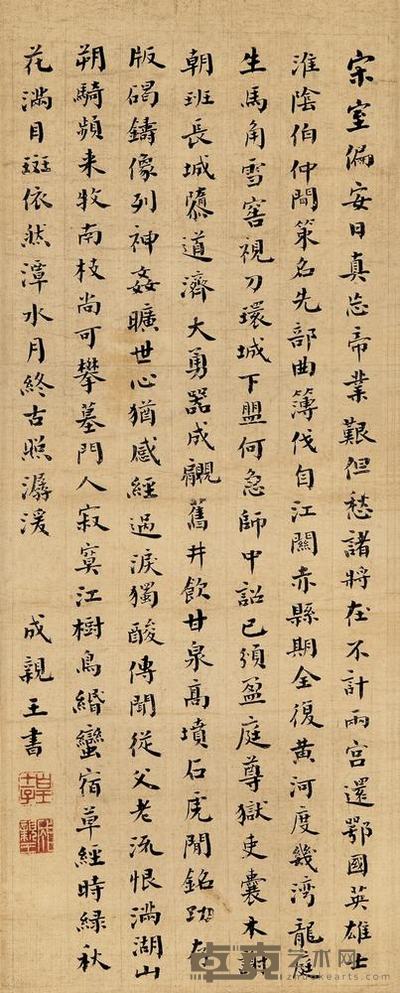 宋室偏安日真忘帝業艱但愁諸將在不計兩宮還鄂國英雄士
淮陰伯仲間策名先部曲簿伐自江關赤縣期全復黃河度幾灣龍庭
生馬角雪窖視刀環城下盟何急師中詔已須盈庭尊獄吏囊木謝
朝班長城隳道濟大勇器成覵舊井飲甘泉高墳石虎閒銘
版碣鑄像列神姦曠世心猶感經過淚獨酸傳聞從父老流恨滿湖山
朔騎頻來牧南枝尚可攀墓門人寂寞江樹鳥緡蠻宿草經時綠秋
花滿目斑依然潭水月終古照潺湲
成親王書
卓克艺术网
zhuokearts.com